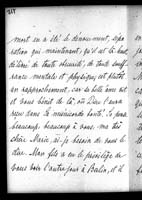 mort en a été le dénouement, sépa
ration qui maintenant, qu'il est là haut
délivré de toute obscurité, de toute souff
rance mentale et physique, est plutôt
un rapprochement, car sa belle âme voit
et vous bénit de là, où Dieu l'aura
reçu dans Sa miséricorde bonté. Je pense
beaucoup, beaucoup à vous, ma très
chère Marie, ai-je besoin de vous le
dire. Mon fils a eu le privilège de
vous voir l'autre jour à Berlin, et il